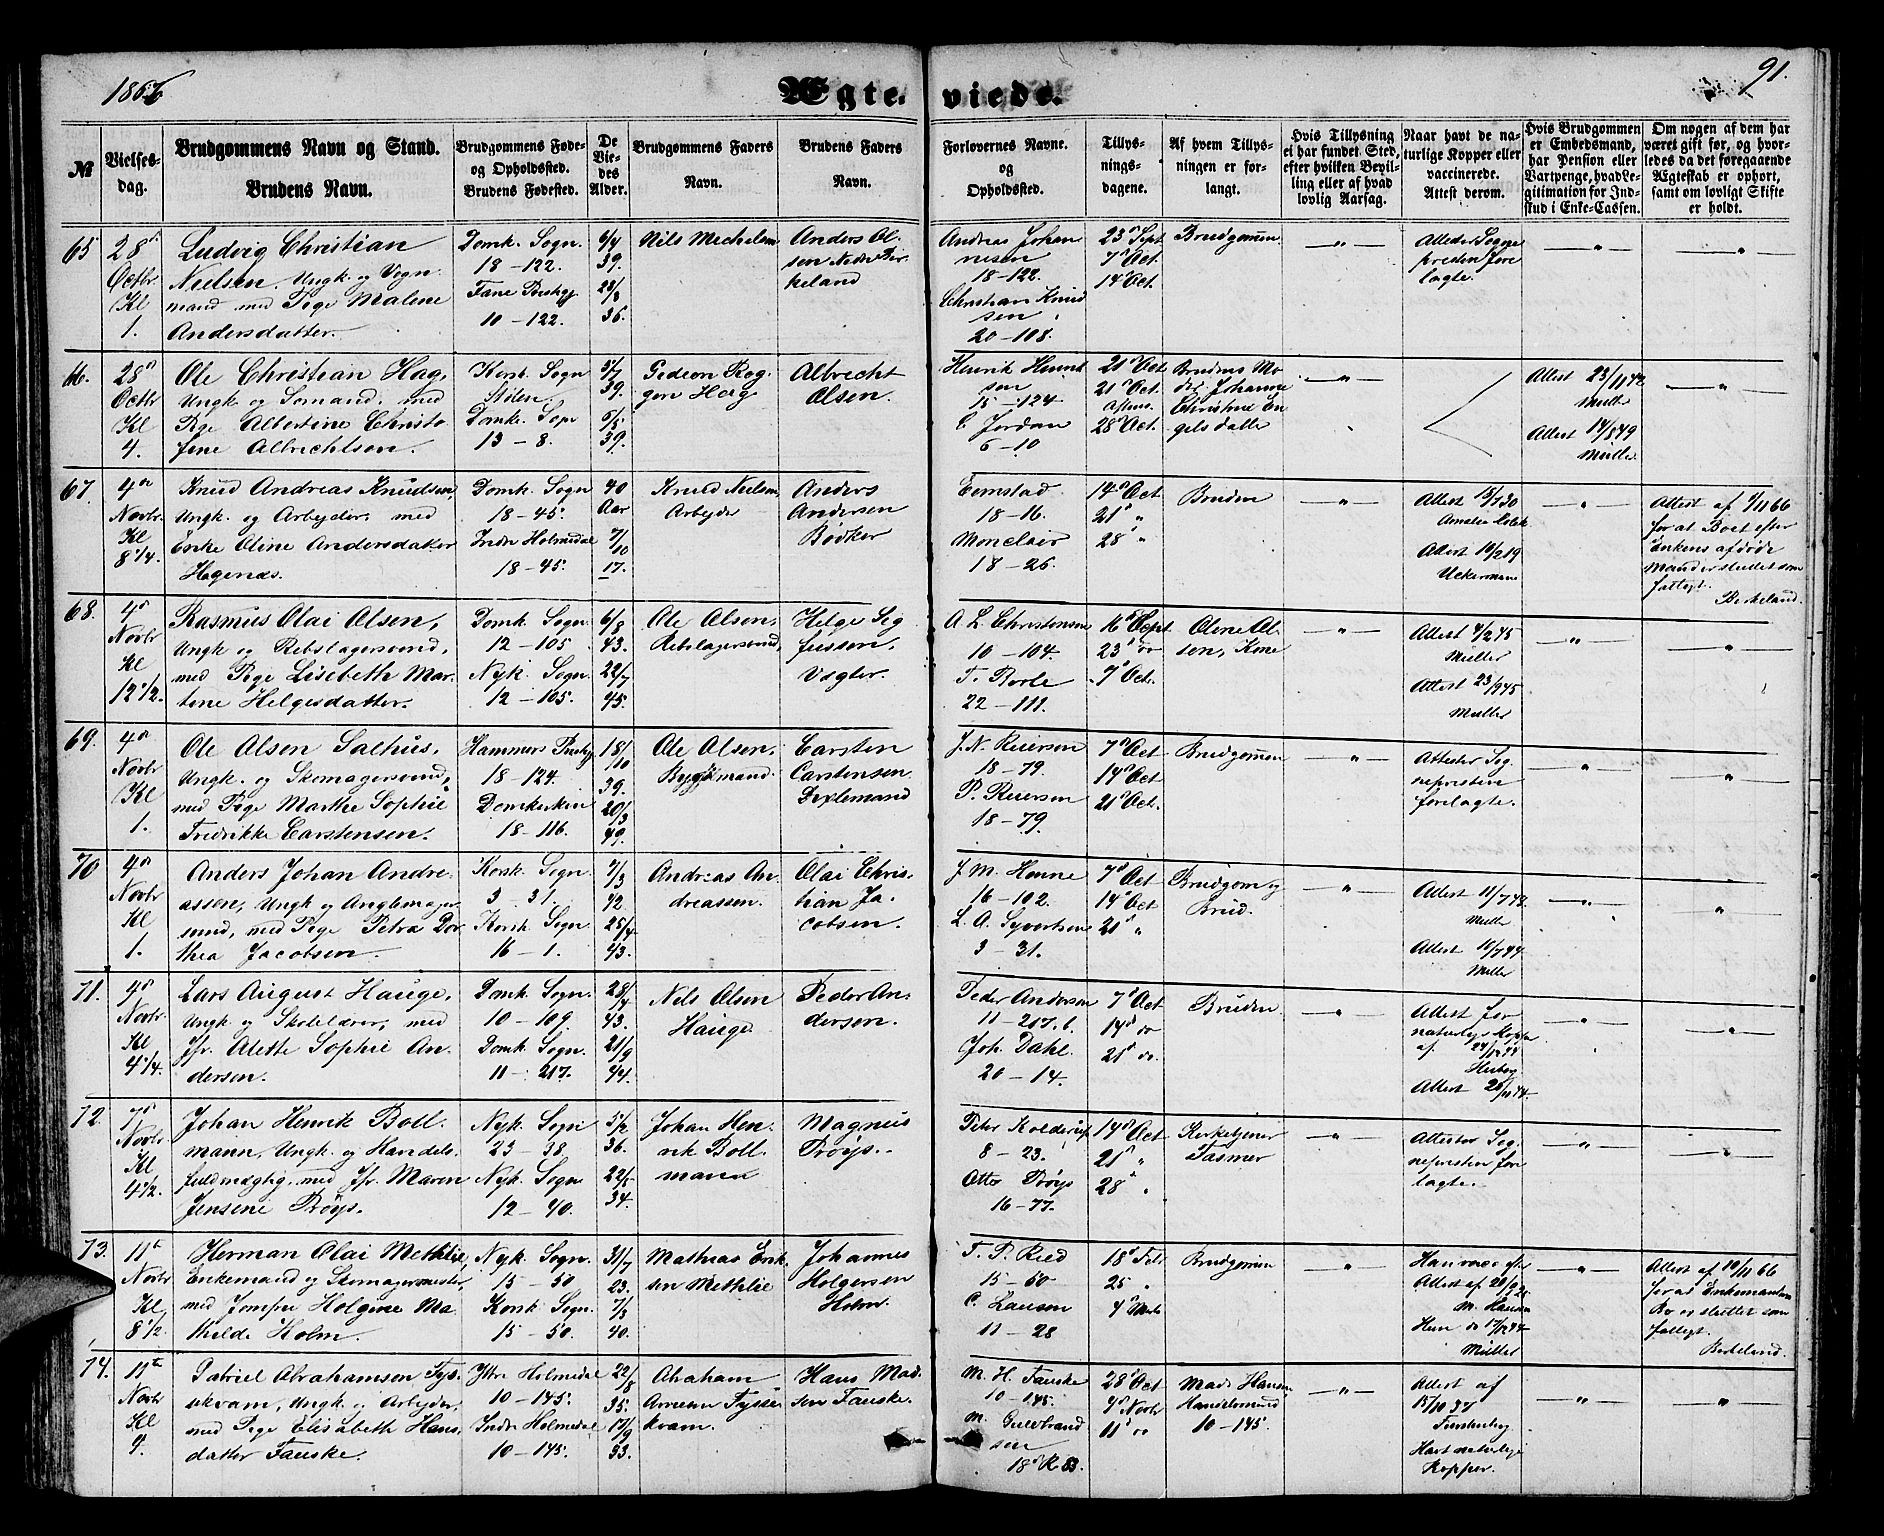 1866
Ægte-
viede.
91.
№
Vielses-
dag.
Brudgommens Navn og Stand.
Brudens Navn.
Brudgommens Føde-
og Opholdssted.
Brudens Fødested.
De
Vie-
des
Alder.
Brudgommens Faders
Navn.
Brudens Faders
Navn.
Forlovernes Navne.
og
Opholdssted.
Tillys-
nings-
dagene.
Af hvem Tillys-
ningen er for-
langt.
Hvis Tillysning
ei har fundet Sted,
efter hvilken Bevil-
ling eller af hvad
lovlig Aarsag.
Naar havt de na-
turlige Kopper eller
vaccinerede.
Attest derom.
Hvis Brudgommen
er Embedsmand,
har Pension eller
Vartpenge, hvad Le-
gitimation for Ind-
skud i Enke-Cassen.
Om nogen af dem har
været gift før, og hvor-
ledes da det foregaaende
Ægteskab er ophørt,
samt om lovligt Skifte
er holdt.
65
28de
Octbr
Kl
1.
Ludvig Christian
Nielsen, Ungk. og Vogn
mand med Pige Malene
Andersdatter.
Domk. Sogn
18-122.
Fane Præstegj.
10-122.
6/4
39.
28/8
36.
Nils Michelsen
Anders Ol-
sen Nedre Bir-
keland
Andreas Johan
nesen
18-122.
Christian Knud
sen
20-108.
23 Sept
7 Oct
14 Oct.
Brudgommen
Attester Sogne
presten fore
lagte.
66.
28de
Octbr
Kl
4.
Ole Christian Hag,
Ungk og Sømand, med
Pige Albertine Christo
fine Albrechtsen.
Korsk. Sogn
Stølen.
Domk. Sogn
13-8.
5/7
39.
6/5
39.
Gedeon Rog-
gen Hag
Albrecht
Olsen.
Henrik Henrik
sen
15-124
C Jordan
6-10
21 Oct
21 Oct.
Aftens.
28 Oct.
Brudens Mo
der Johanne
Christine En
gelsdatter
Attest 23/11 42
Müller
Attest 14/8 49
Müller.
67.
4de
Novbr.
Kl
8 1/4.
Knud Andreas Knudsen,
Ungk. og Arbejder, med
Enke Oline Andersdatter
Hagenæs.
Domk. Sogn
18-45.
Indr Holmedal
18-45.
40
Aar
7/
10
17.
Knud Nielsen
Arbejder
Anders
Andersen
Bødker
Eemstad
18-16.
Monclair
18-26.
14 Oct
21 "
28 "
Bruden
Attest 15/7 30
Attest 10/2 19
Uckermann
Attest af 1/11 66
for at Boet efter
Enkens afdøde
Mand er sluttet som
fattigt.
Birkeland.
68.
4de
Novbr
Kl
12 1/2.
Rasmus Olai Olsen,
Ungk og Rebslagersvend,
med Pige Lisebeth Mar-
tine Helgesdatter.
Domk. Sogn
12-105
Nyk. Sogn.
12-105.
6/8
43.
22/7
45.
Ole Olsen,
Rebslagersvend,
Helge Sig
fussen,
Vogter.
A. L. Christensen
10-104.
T. Rorte
22-111.
16 Sept
23 do
7 Oct.
Olene Ol-
sen, Kone
Attest 4/2 45
Müller
Attest 23/9 45
Müller
69.
4de
Novbr
Kl
1.
Ole Olsen Salhus,
Ungk. og Skomagersvend,
med Pige Marthe Sophie
Fredrikke Carstensen.
Hammers Præstegj
18-124.
Domkirken
18-116.
18/
10
39.
20/3
49.
Ole Olsen,
Bygmand.
Carsten
Carstensen
Dixlemand
J. N. Reierson
18-79.
P. Reierson
18-79.
7 Oct
14 Oct
21 Oct.
Brudgommen
Attester Sog
nepresten
forelagte.
70
4de
Novbr
Kl
1.
Anders Johan Andre-
assen, Ungk og Anglemager
svend, med Pige Petra Dor
thea Jacobsen.
Korsk. Sogn
3 31.
Korsk. Sogn
16-1.
7/3
42.
25/4
43.
Andreas An-
dreassen.
Olai Chris-
tian Ja-
cobsen.
J. M. Honne
16-102.
L. A. Syvertsen
3-31.
7 Oct
14 Oct
21 "
Brudgom og
Brud.
Attest 11/7 42
Müller
Attest 15/7 44
Müller
71.
4de
Novbr.
Kl
4 1/4.
Lars August Hauge,
Ungk og Skolelærer, med
Jfr. Alette Sophie An-
dersen.
Domk. Sogn.
10-109.
Domk. Sogn.
11-217.
28/4
43.
21/9
44.
Nels Olsen
Hauge
Peder An-
dersen.
Peder Andersen
11-217.b.
Joh. Dahl.
20-14.
7 Oct
14 do
21 do.
Bruden
Attest for
naturlige Kopper
af 24/12 44
Attest 20/11 44.
72.
7de
Novbr.
Kl
4 1/2.
Johan Henrik Boll-
mann, Ungk. og Handels-
fuldmægtig, med Jfr. Maren
Jensine Prøys.
Nyk. Sogn
23-38.
Nyk. Sogn
12-40.
5/2
36.
22/5
34.
Johan Hen-
rik Boll-
mann
Magnus
Prøys.
Peter Kolderup
8-23.
Otto Prøys
16-77.
14 Oct
21 "
28 "
Kirketjener
Tasmer
Attester Sog
nepresten fore
lagte.
73.
11te
Novbr
Kl
8 1/2.
Herman Olai Methlie,
Enkemand og Skomagermester,
med Jomfru Holgine Ma-
thilde Holm.
Nyk. Sogn.
15-50
Korsk. Sogn.
15-50.
31/7
23.
7/3
40.
Mathias Erik
sen Methlie
Johannes
Holgersen
Holm.
T. P. Reed
15-50
C. Larsen
11-28
18 Febr
25 "
4 Marts
Brudgommen
Han vacc efter
Attest af 20/9 25
M. Hansen
Hun do 17/12 44.
Müller
Attest af 10/11 66
for at Enkemandens
Bo er sluttet som
fattigt.
Birkeland.
74.
11te
Novbr
Kl
4.
Gabriel Abrahamsen Tys-
sekvam, Ungk. og Arbejder,
med Pige Elisabeth Hans
datter Fauske.
Ytre Holmedal
10-145.
Indre Holmedal
10-145.
22/8
35.
17/9
33.
Abraham
Arnesen Tysse
kvam.
Hans Mad-
sen Fauske.
M. H. Fauske
10-145.
M. Guldbrand
sen
18 R 83.
28 Oct
4 Novbr
11 do
Mads Hansen
Handelssvend
10-145.
Attest af
15/10 37
Havt naturlige
Kopper.